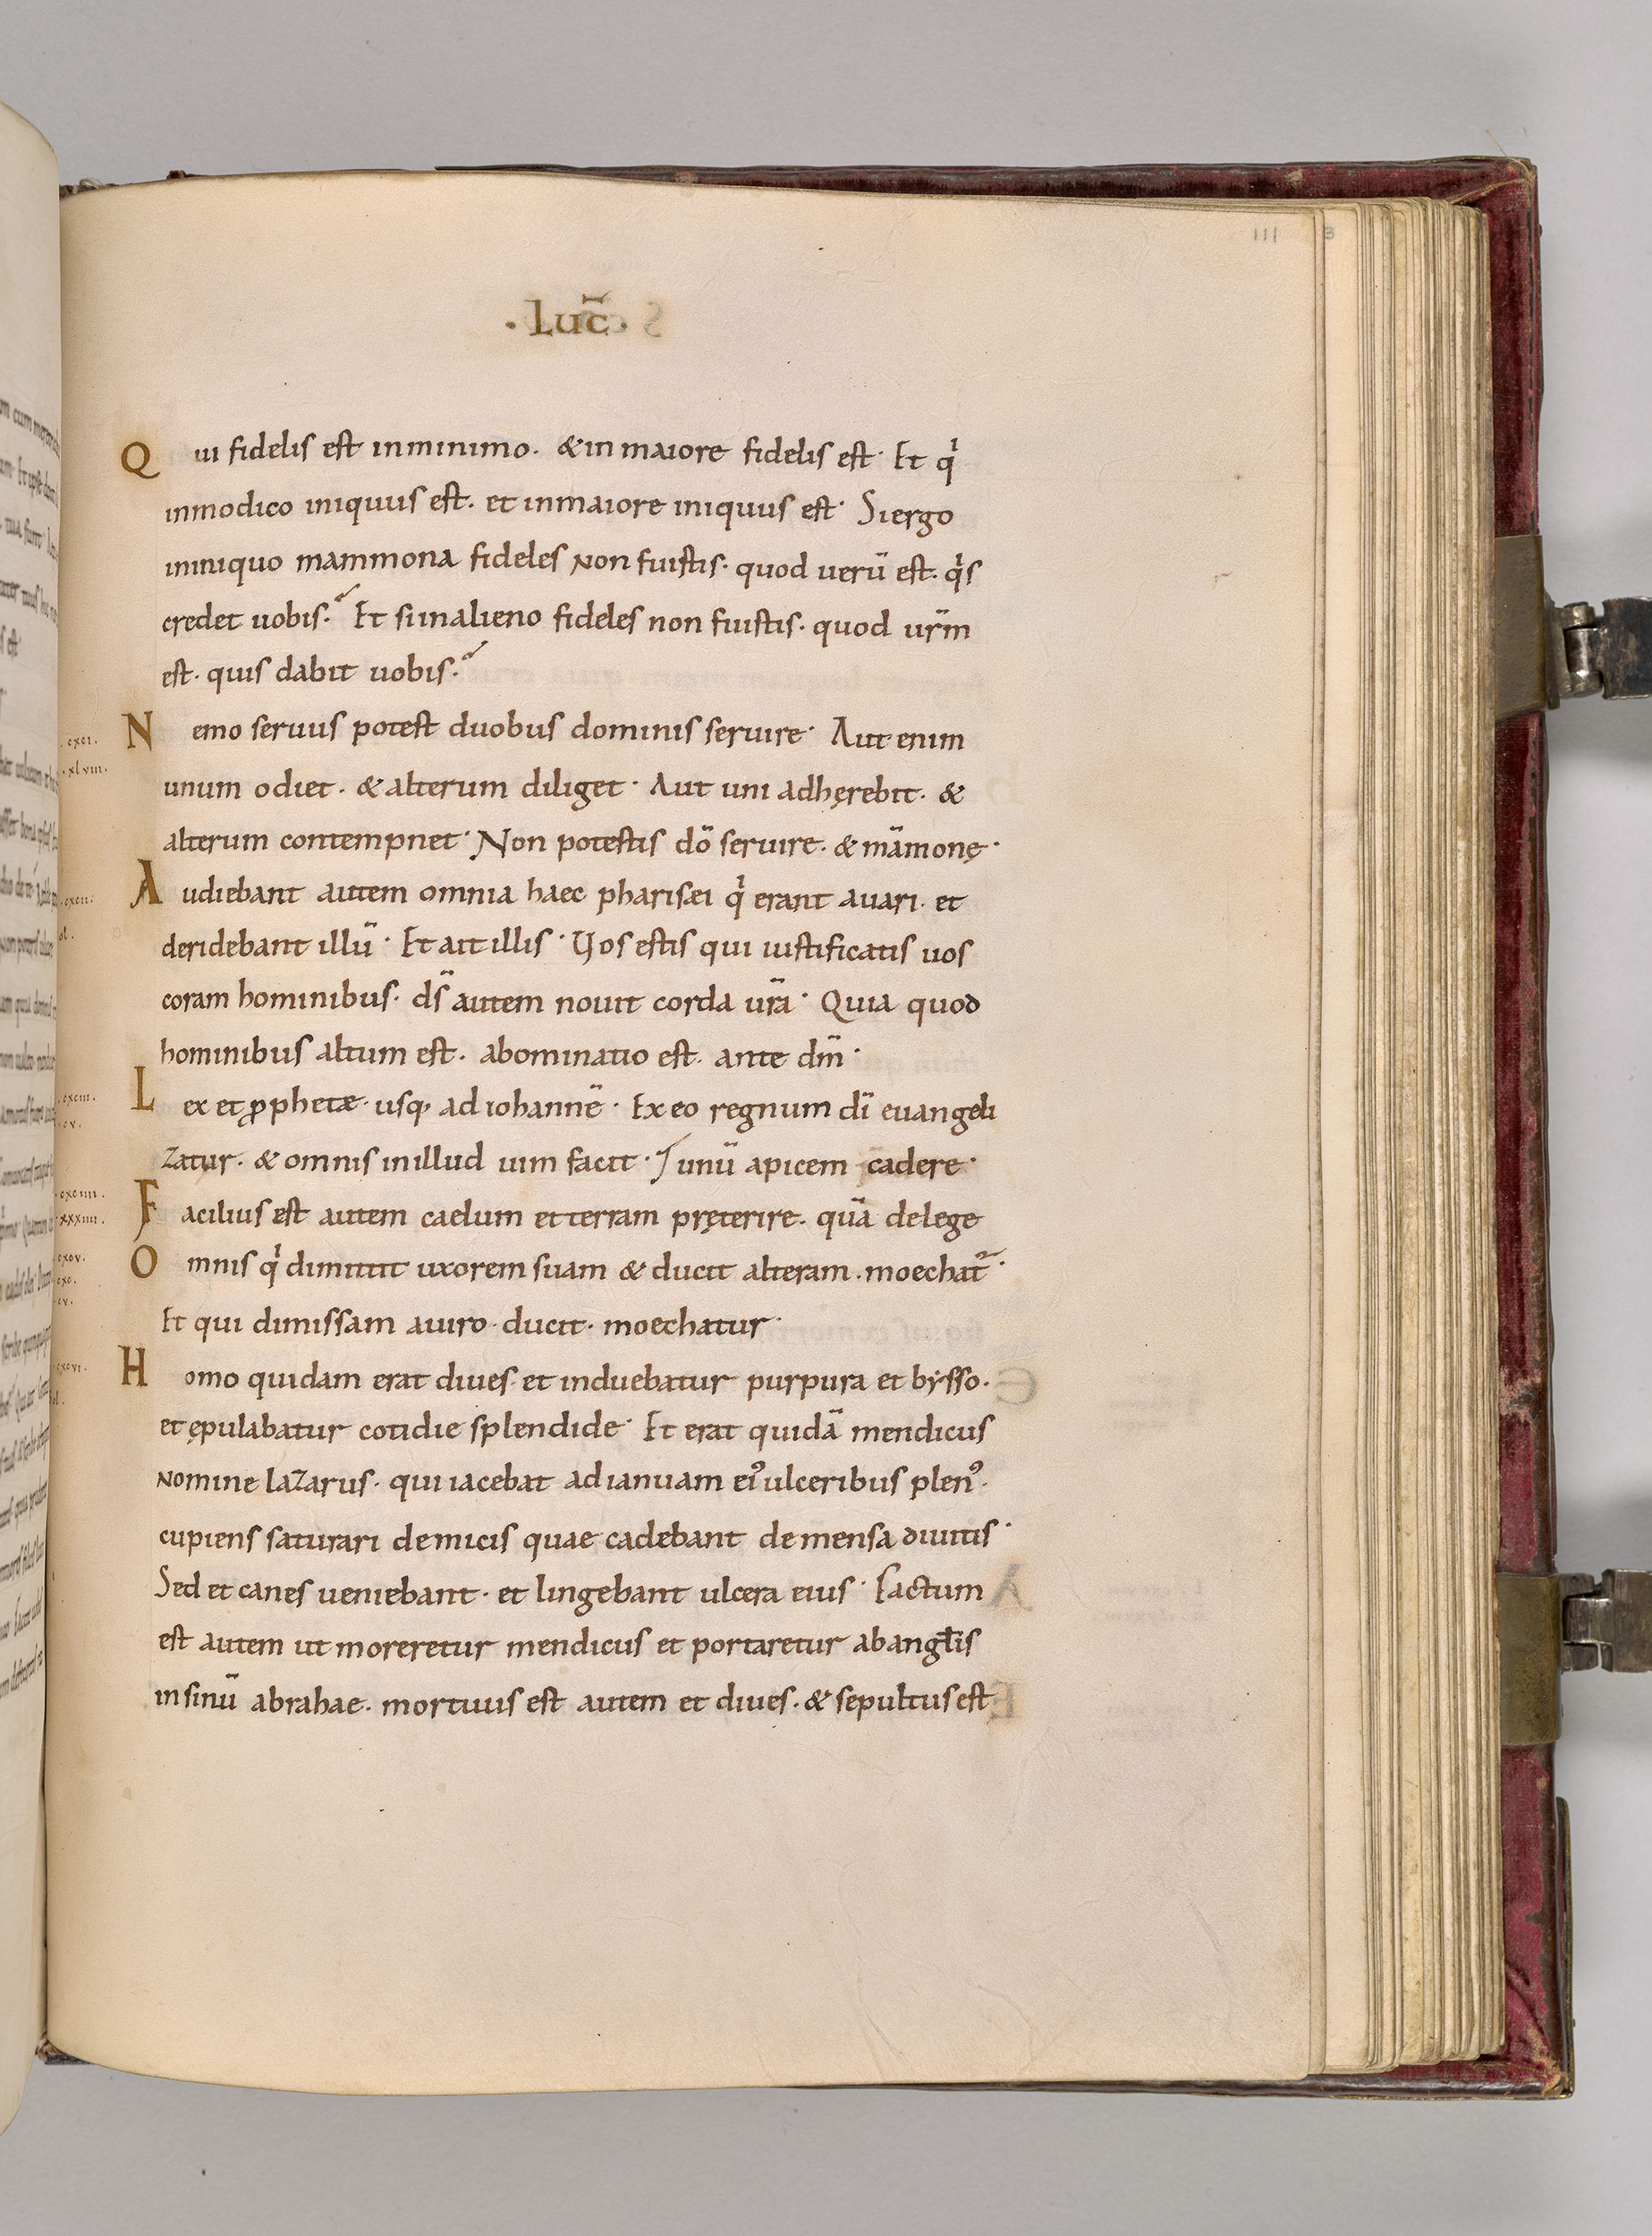 111 3
· Luc̄ ·
Qui fidelis est inminimo. &in maiore fidelis est· Et qͥ
inmodico iniquus est. et inmaiore iniquus est· Siergo
ininiquo mammona fideles non fuistis· quod uerū est. qͥs
credet uobis. Et sunalieno fideles non fuistis. quod ur̄m
est. quis dabit uobis.
·cxci. Nemo seruus potest duobus dominis seruire· Aut enim
·xlviii. unum odiet. & alterum diliget· Aut uni adhęrebit. &
alterum contempnet· Non potestis dō seruire. & māmonę·
·cxcii. Audiebant autem omnia haec pharisæi qͥ erant auari. et
deridebant illū· Et ait illis· Vos estis qui iustificatis uos
coram hominibus. ds̄ autem nouit corda ur̄a· Quia quod
hominibus altum est. abominatio est. ante dm̄·
·cxciii. Lex et ꝓphetæ· usq; ad iohannē· Ex eo regnum dī euangeli
·cv. zatur. & omnis inillud uim facit· / unū apicem cadere·
·cxciiii. Facilius est autem caelum et terram pręterire. quā delege
·cxcv. Omnis qͥ dimittit uxorem suam & ducit alteram. moechat᷑·
·cv. Et qui dimissam auiro ducit. moechatur·
·cxcvi. Homo quidam erat diues· et induebatur purpura et bẏsso.
et ępulabatur cotidie splendide· Et erat quidā mendicus
nomine lazarus. qui iacebat ad ianuam eiꝰ ulceribus plenꝰ·
cupiens saturari demicis quae cadebant de mensa diuitis·
Sed et canes ueniebant· et lingebant ulcera eius· Factum
est autem ut moreretur mendicus et portaretur abangl̄is
insinū abrahae. mortuus est autem et diues. & sepultus est